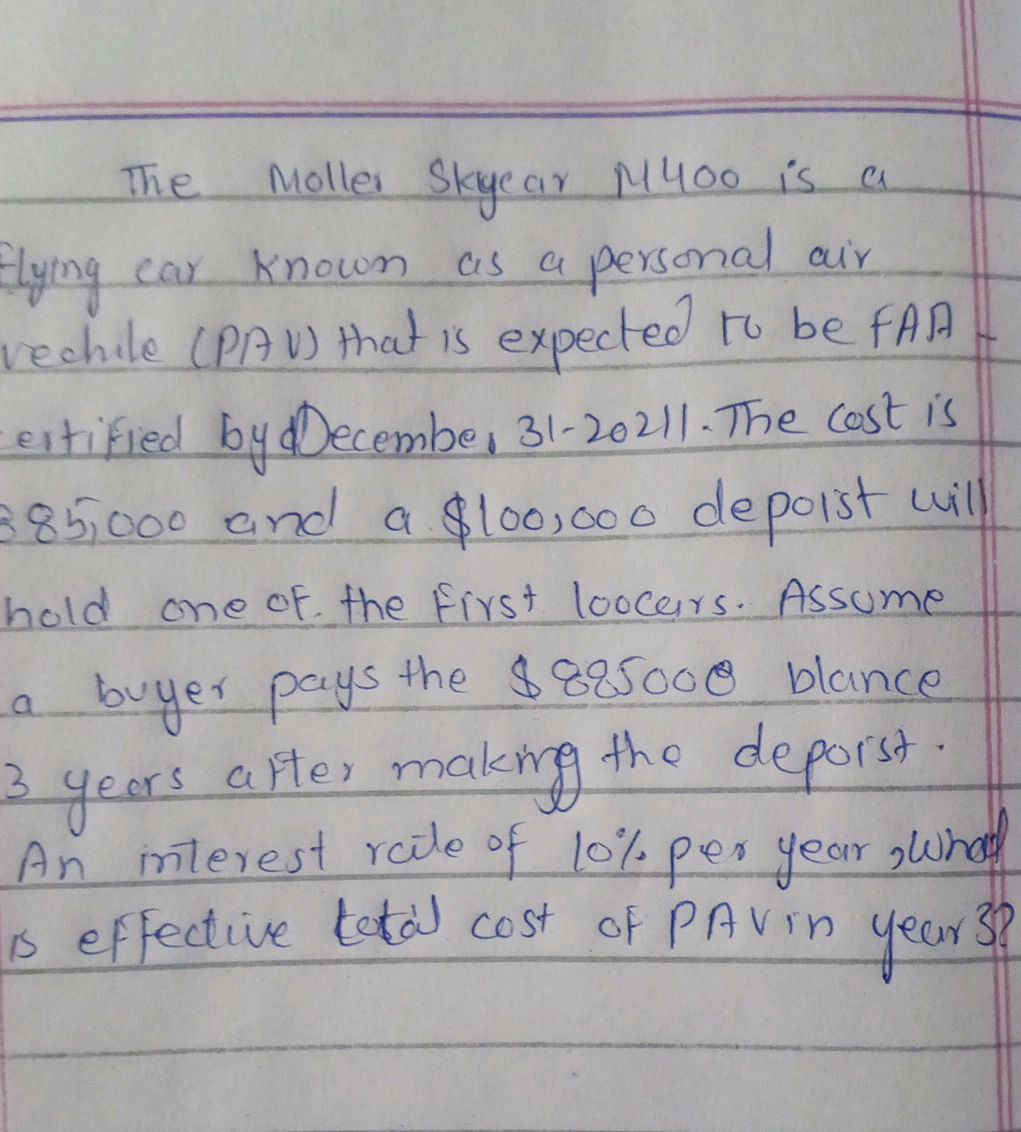 The Moller Skycar M400 is a
flying car known as a personal air
vechile (PAV) that is expected to be FAA
ertified by December 31-20211. The cost is
385,000 and a $100,000 depoist will
hold one of. the first loocars. Assume
a buyer pays the $885000 blance
3 years after making the depoist.
An interest rate of 10% per year, what
is effective total cost of PAV in year 3?